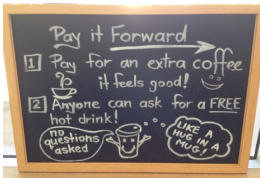 Pay it Forward
1 Pay for an extra coffee
it feels good!
2 Anyone can ask for a FREE
hot drink!
no
questions
asked
LIKE A
HUG IN A
MUG!